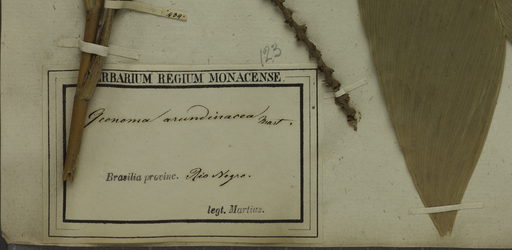 123
HERBARIUM REGIUM MONACENSE.
Geonoma arundinacea Mart.
Brasilia provinc. Rio Negro.
legt. Martius.